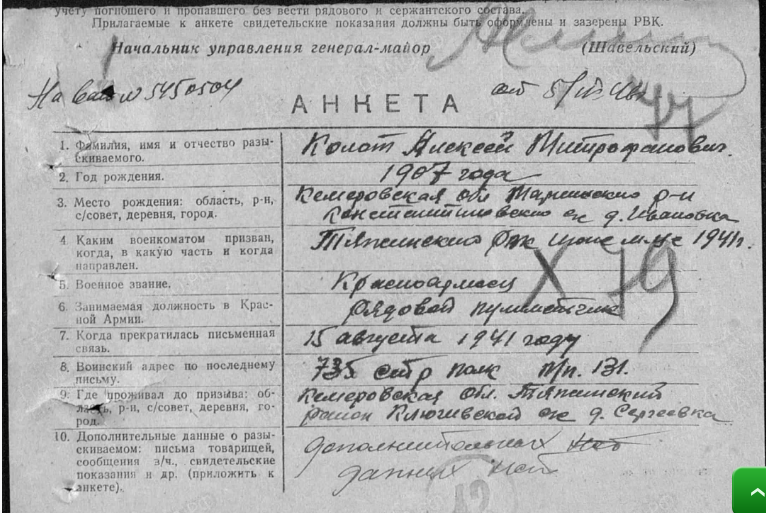 учету погибшего и пропавшего без вести рядового и сержантского состава.
Прилагаемые к анкете свидетельские показания должны быть оформлены и заверены РВК.
Начальник управления генерал-майор (Шавельский)
На № 5450504 от
АНКЕТА
77
1. Фамилия, имя и отчество разы-
скиваемого.
Колот Алексей Митрофанович.
2. Год рождения.
1907 года
3. Место рождения: область, р-н,
с/совет, деревня, город.
Кемеровская обл р-н
д. Ивановка
4. Каким военкоматом призван,
когда, в какую часть и когда
направлен.
Тяжинского 1941г.
5. Военное звание.
Красноармеец
X 79
6. Занимаемая должность в Крас-
ной Армии.
рядовой
7. Когда прекратилась письменная
связь.
15 августа 1941 году
8. Воинский адрес по последнему
письму.
735 стр полк п/п. 131.
9. Где проживал до призыва: об-
ласть, р-н, с/совет, деревня, го-
род.
Кемеровская обл. Тяжинский
район Ключевской д. Сергеевка
10. Дополнительные данные о разы-
скиваемом: письма товарищей,
сообщения в/ч., свидетельские
показания и др. (приложить к
анкете).
дополнительных нет
данных нет